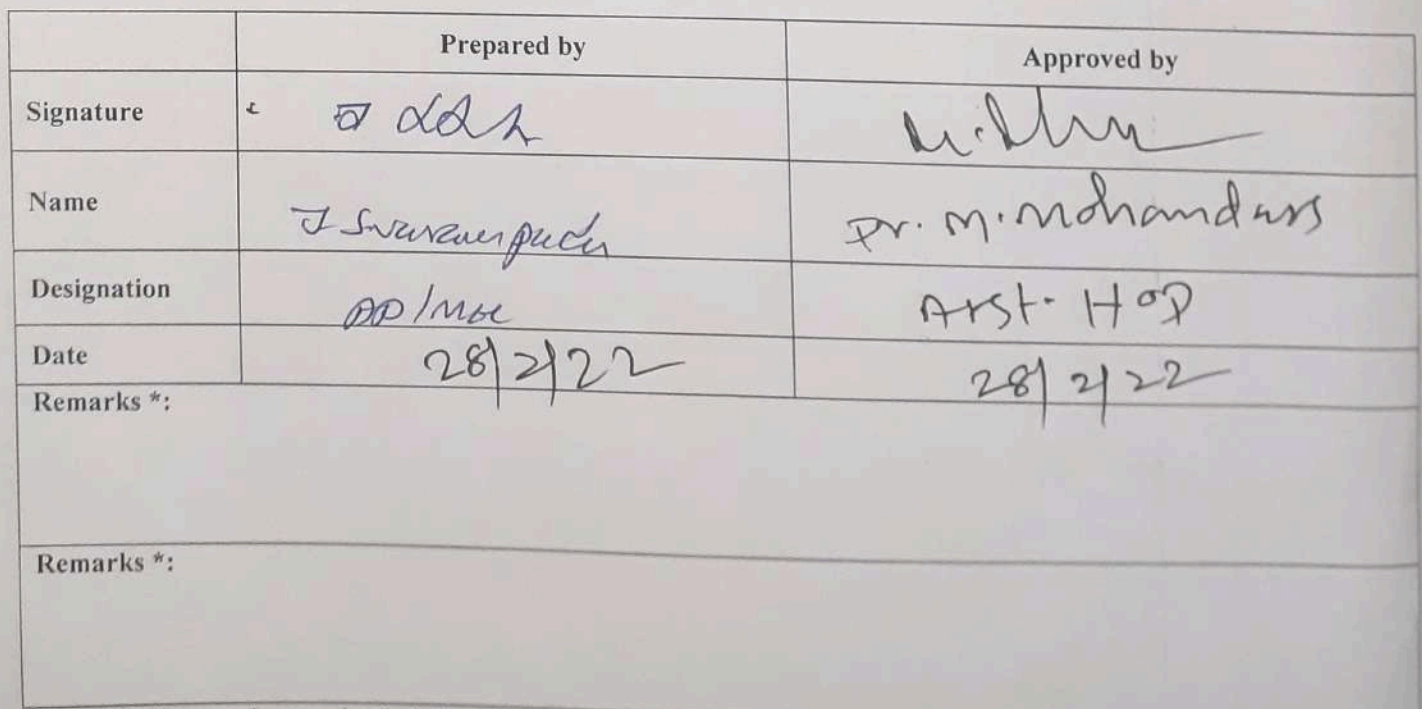 Prepared by Approved by
Signature
Name Dr. M. Mohandass
Designation Asst. HOD
Date 28/2/22 28/2/22
Remarks *:
Remarks *: